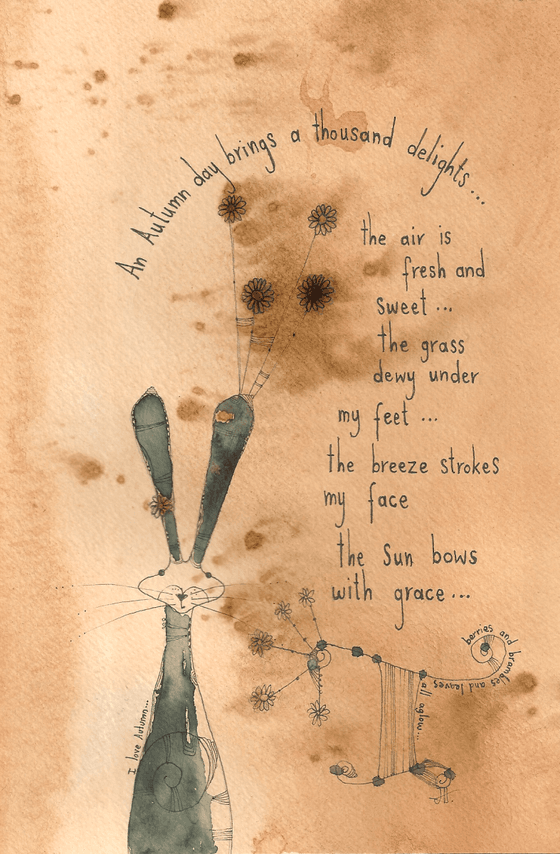 An Autumn day brings a thousand delights...
the air is
fresh and
sweet...
the grass
dewy under
my feet...
the breeze strokes
my face
the Sun bows
with grace...
berries and brambles and leaves
all aglow...
I love Autumn...